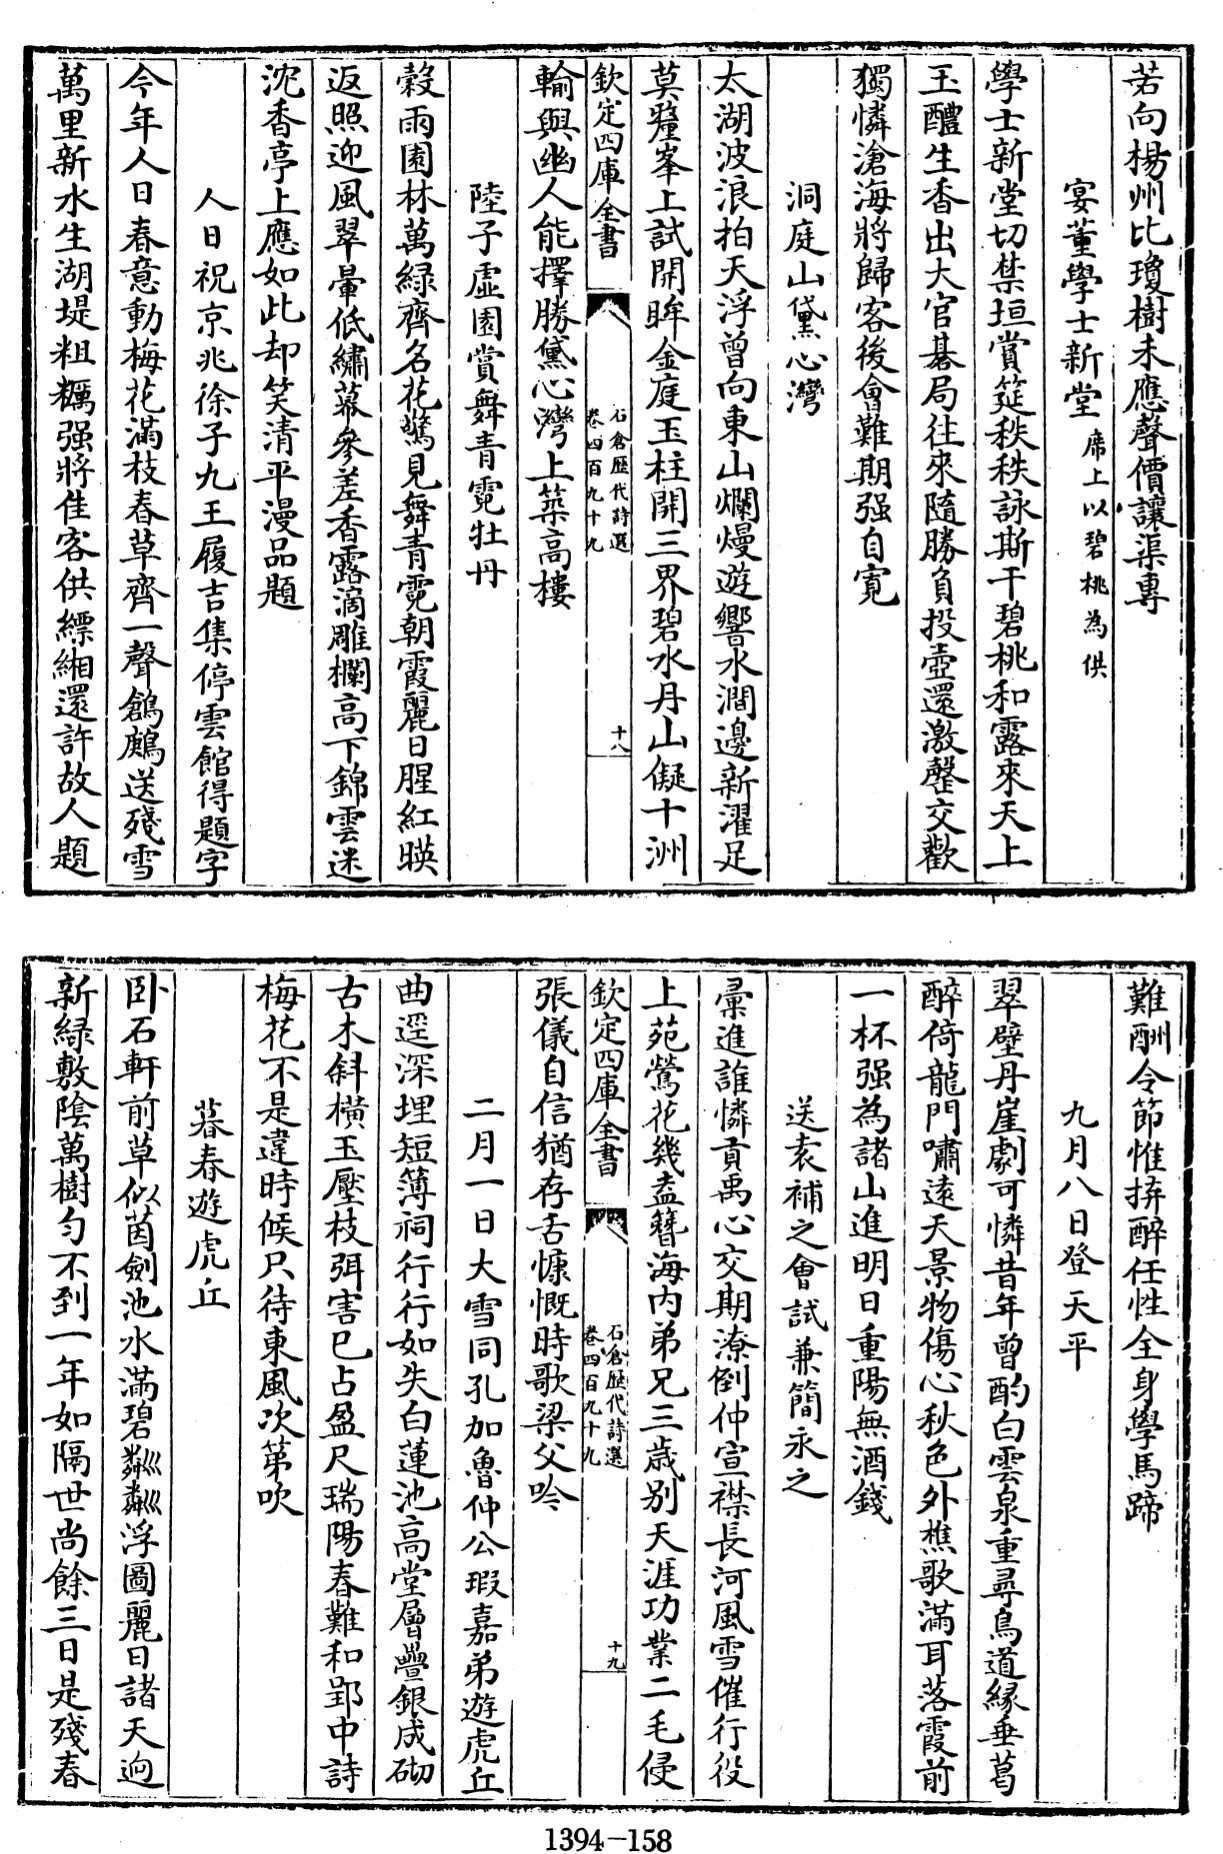 若向楊州比瓊樹未應聲價讓渠專
宴董學士新堂席上以碧桃為供
學士新堂切禁垣賞筵秩秩詠斯干碧桃和露來天上
玉醴生香出大官碁局往來隨勝負投壺還激罄交歡
獨憐滄海將歸客後會難期强自寛
洞庭山黛心灣
太湖波浪拍天浮曾向東山爛熳遊響水澗邊新濯足
莫釐峯上試開眸金庭玉柱開三界碧水丹山儗十洲
欽定四庫全書
石倉歴代詩選
卷四百九十九
十八
輸與幽人能擇勝黛心灣上築高樓
陸子虛園賞舞青霓牡丹
榖雨園林萬緑齊名花驚見舞青霓朝霞麗日腥紅暎
返照迎風翠暈低繡幕參差香露滴雕欄高下錦雲迷
沈香亭上應如此却笑清平漫品題
人日祝京兆徐子九王履吉集停雲館得題字
今年人日春意動梅花滿枝春草齊一聲鶬鶊送殘雪
萬里新水生湖堤粗糲强將佳客供縹緗還許故人題
難酬令節惟拚醉任性全身學馬蹄
九月八日登天平
翠壁丹崖劇可憐昔年曾酌白雲泉重尋鳥道縁垂葛
醉倚龍門嘯遠天景物傷心秋色外樵歌滿耳落霞前
一杯强為諸山進明日重陽無酒錢
送袁補之會試兼簡永之
彚進誰憐貢禹心交期潦倒仲宣襟長河風雪催行役
上苑鶯花幾盍簪海内弟兄三歳别天涯功業二毛侵
欽定四庫全書
石倉歴代詩選
卷四百九十九
十九
張儀自信猶存舌慷慨時歌梁父吟
二月一日大雪同孔加魯仲公瑕嘉弟遊虎丘
曲逕深埋短簿祠行行如失白蓮池高堂層疊銀成砌
古木斜横玉壓枝弭害已占盈尺瑞陽春難和郢中詩
梅花不是違時候只待東風次第吹
暮春遊虎丘
卧石軒前草似茵劍池水滿碧粼粼浮圖麗日諸天逈
新緑敷陰萬樹匀不到一年如隔世尚餘三日是殘春
1394-158